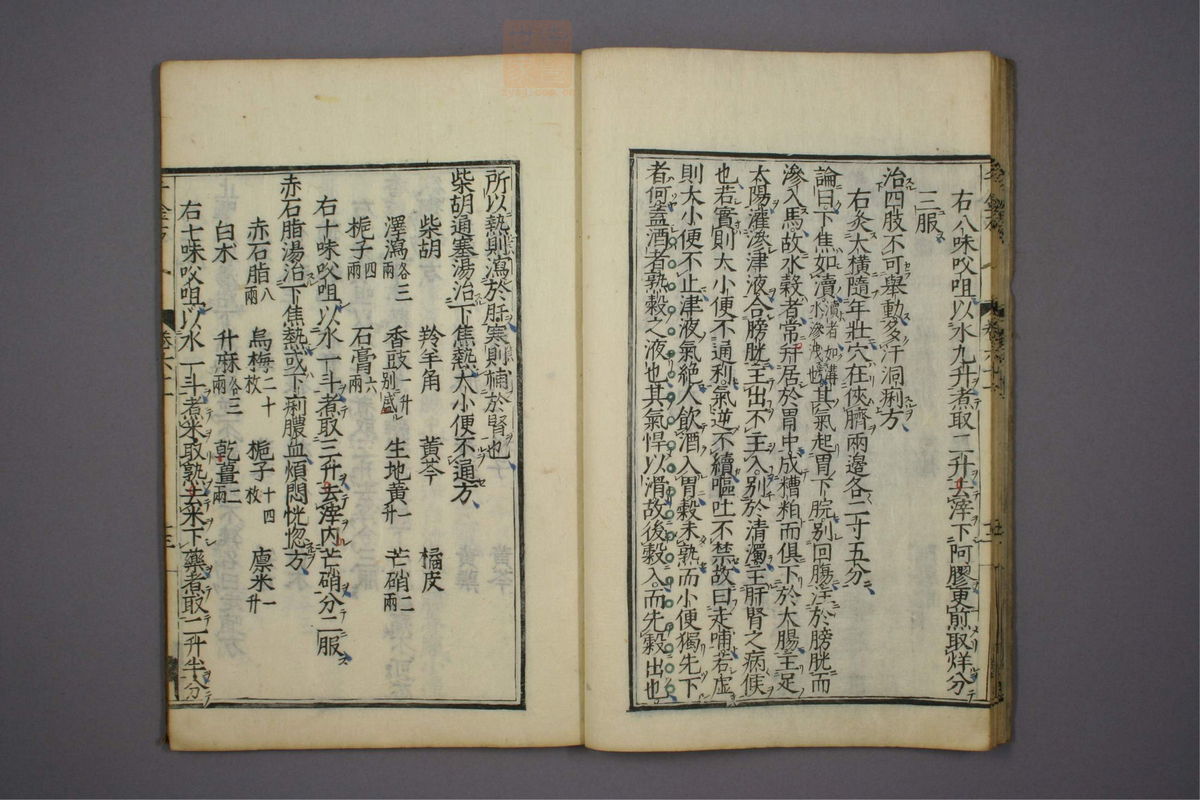 右八味㕮咀以水九升煮取二升去滓下阿膠更煎取烊分
三服
治四肢不可舉動多汗洞痢方
右灸大橫隨年壯穴在俠臍兩邊各二寸五分
論曰下焦如瀆瀆者如溝水滲洩也其氣起胃下脘別回腸注於膀胱而
滲入焉故水穀者常并居於胃中成糟粕而俱下於大腸主足
太陽灌滲津液合膀胱主出不主入別於清濁主肝腎之病候
也若實則大小便不通利氣逆不續嘔吐不禁故曰走哺若虛
則大小便不止津液氣絕人飲酒入胃穀未熟而小便獨先下
者何蓋酒者熟穀之液也其氣悍以滑故後穀入而先穀出也
所以熱則瀉於肝寒則補於腎也
柴胡通塞湯治下焦熱大小便不通方
柴胡 羚羊角 黃芩 橘皮
澤瀉各三兩 香豉一升別盛 生地黃一升 芒硝二兩
梔子四兩 石膏六兩
右十味㕮咀以水一斗煮取三升去滓內芒硝分二服
赤石脂湯治下焦熱或下痢膿血煩悶恍惚方
赤石脂八兩 烏梅二十枚 梔子十四枚 廩米一升
白朮 升麻各三兩 乾薑二兩
右十味㕮咀以水一斗煮米取熟去米下藥煮取二升半分